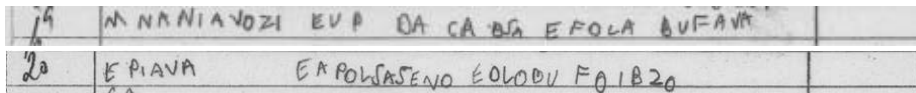 19 MNANIAVOZI EUP DA CA BSA EFOLA BUFAVA
20 EPIAVA EAPOLSASENO EOLOBU FOIBZO